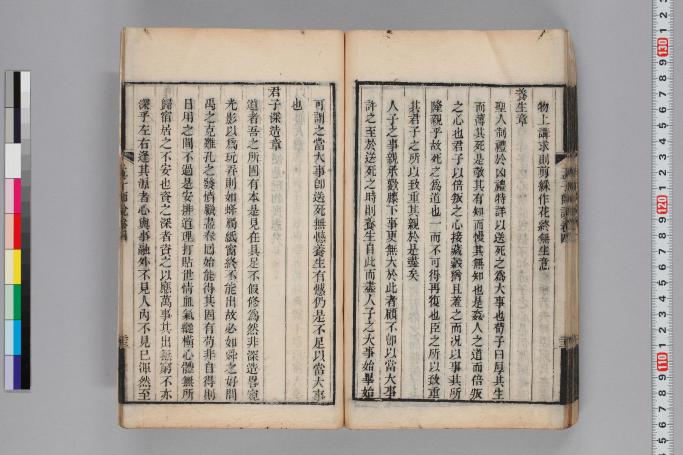 物上講求則剪綵作花終無生意
養生章
聖人制禮於凶禮特詳以送死之為大事也荀子曰厚其生
而薄其死是敬其有知而慢其無知也是姦人之道而倍叛
之心也君子以倍叛之心接臧穀猶且羞之而况以事其所
隆親乎故死之為道也一而不可得再復也臣之所以致重
其君子之所以致重其親於是盡矣
人子之事親承歡膝下事更無大於此者顧不卽以當大事
許之至於送死之時則養生自此而盡人子之大事始畢始
可謂之當大事卽送死無憾養生有憾仍是不足以當大事
也
君子深造章
道者吾之所固有本是見在具足不假修為然非深造學究
光影以為玩弄則如蜂觸紙窗終不能出故必如舜之好問
禹之克艱孔之發憤
日用之間不過是安排道理打貼世情血氣
歸宿居之不安也資之深者資之以應萬事其出無窮不亦
深乎左右逢其源者心與事融外不見人內不見巳渾然至